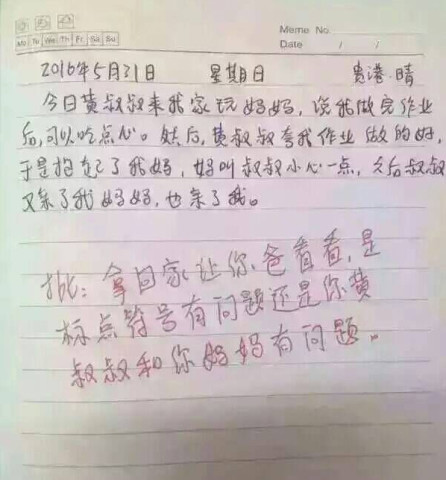 Meme No.
Mo Tu We Th Fr Sa Su
Date / /
2016年5月31日 星期日 贵港·晴
今日黄叔叔来我家玩妈妈,说我做完作业
后,可以吃点心。然后,黄叔叔夸我作业做的好,
于是抱起了我妈,妈叫叔叔小心一点,久后叔叔
又亲了我妈妈,也亲了我。
批:拿回家让你爸看看,是
标点符号有问题还是你黄
叔叔和你妈妈有问题。